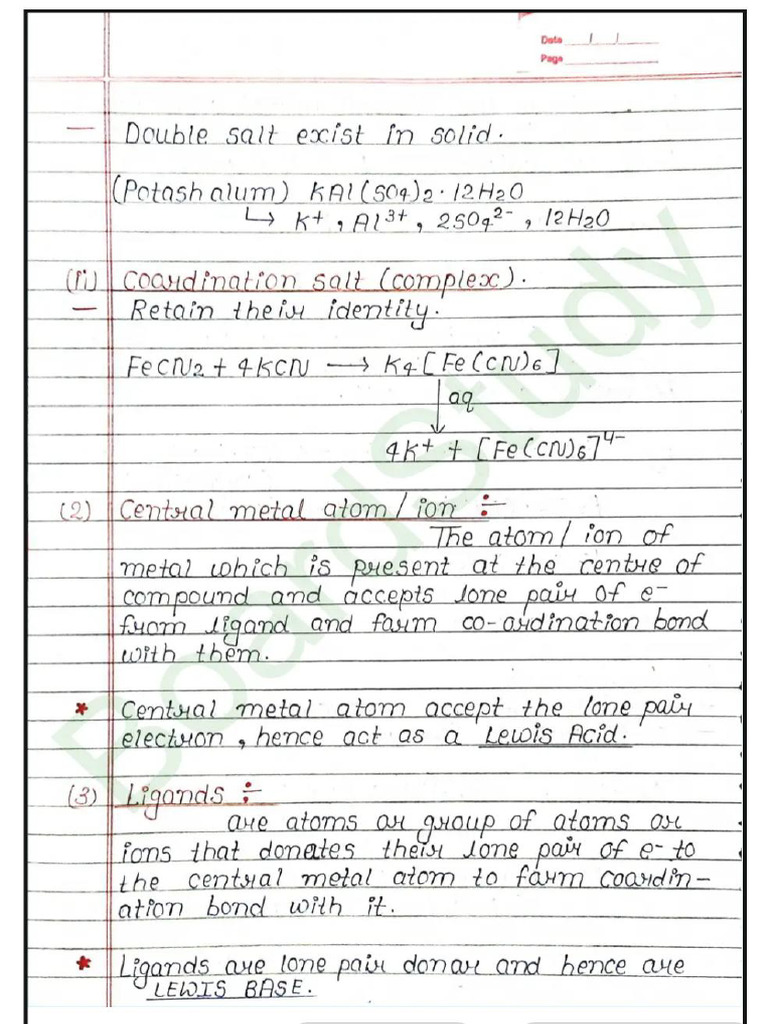 Date / /
Page
— Double salt exist in solid.
(Potash alum) KAl(SO4)2·12H2O
↳ K+, Al3+, 2SO42-, 12H2O
(ii) Coordination salt (complex).
— Retain their identity.
FeCN2 + 4KCN ⟶ K4[Fe(CN)6]
↓ aq
4K+ + [Fe(CN)6]4-
(2) Central metal atom/ion :-
The atom/ion of
metal which is present at the centre of
compound and accepts lone pair of e-
from ligand and form co-ordination bond
with them.
* Central metal atom accept the lone pair
electron, hence act as a Lewis Acid.
(3) Ligands :-
are atoms or group of atoms or
ions that donates their lone pair of e- to
the central metal atom to form coordin-
ation bond with it.
* Ligands are lone pair donor and hence are
LEWIS BASE.
BoardStudy